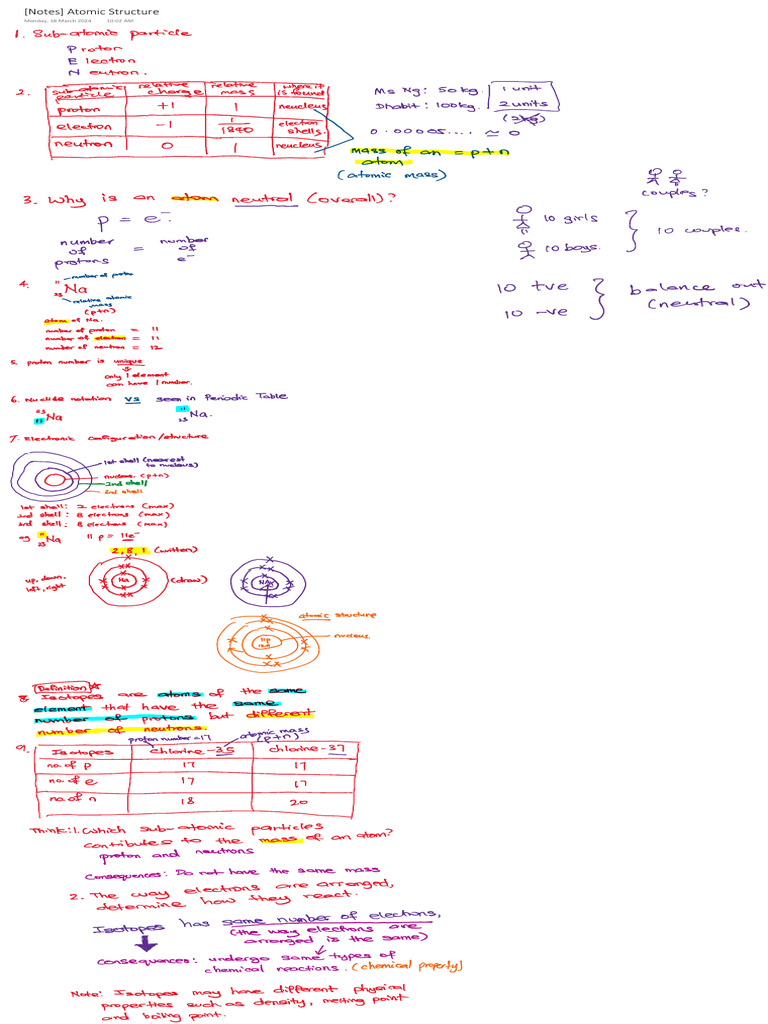 [Notes] Atomic Structure
Monday, 18 March 2024 10:02 AM
1. Sub-atomic particle
Proton
Electron
Neutron.
2.
sub-atomic particle | relative charge | relative mass | where it is found
proton | +1 | 1 | neucleus
electron | -1 | 1/1840 | electron shells.
neutron | 0 | 1 | neucleus
Ms Ng: 50kg. 1 unit
Dhabit: 100kg. 2 units
0.00005.... ≃ 0
mass of an = p+n
atom
(atomic mass)
3. Why is an atom neutral (overall)?
p = e⁻.
number of protons = number of e⁻
couples?
10 girls
10 boys.
10 couples.
10 +ve
10 -ve
balance out
(neutral)
4.
11 number of proton
Na
23 relative atomic
mass
(p+n)
atom of Na.
number of proton = 11
number of electron = 11
number of neutron = 12
5. proton number is unique
only 1 element
can have 1 number.
6. Nuclide notation vs seen in Periodic Table
23 11 Na
11 23 Na.
7. Electronic configuration/structure
1st shell (nearest
to nucleus)
nucleus (p+n)
2nd shell
3rd shell
1st shell: 2 electrons (max)
2nd shell: 8 electrons (max)
3rd shell: 8 electrons (max)
eg 11 23 Na 11 p = 11e⁻
2, 8, 1 (written)
up, down,
left, right
Na
(draw)
Na
atomic structure
11p
12n
nucleus.
Definition
8. Isotopes are atoms of the same
element that have the same
number of protons but different
number of neutrons.
proton number = 17
atomic mass
(p+n)
9.
Isotopes | chlorine-35 | chlorine-37
no. of p | 17 | 17
no. of e | 17 | 17
no. of n | 18 | 20
Think: 1. Which sub-atomic particles
contributes to the mass of an atom?
proton and neutrons
Consequences: Do not have the same mass
2. The way electrons are arranged,
determine how they react.
Isotopes has same number of electrons,
(the way electrons are
arranged is the same)
Consequences: undergo same types of
chemical reactions. (chemical property)
Note: Isotopes may have different physical
properties such as density, melting point
and boiling point.